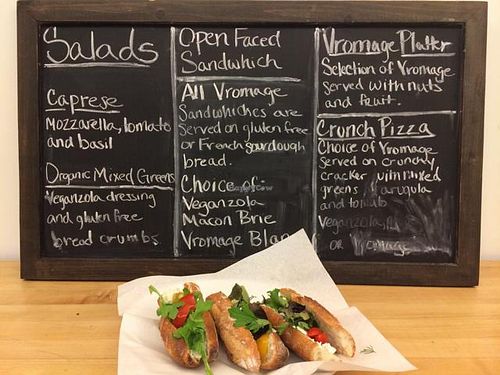 Salads
Caprese
Mozzarella, tomato
and basil
Organic Mixed Greens
Veganzola dressing
and gluten free
bread crumbs
Open Faced
Sandwhich
All Vromage
Sandwhiches are
Served on gluten free
or French sourdough
bread.
Choice of:
Veganzola
Macon Brie
Vromage Blanc
Vromage Platter
Selection of Vromage
served with nuts
and fruit.
Crunch Pizza
Choice of Vromage
Served on crunchy
cracker with mixed
greens, arugula
and tomato
Veganzola,
OR